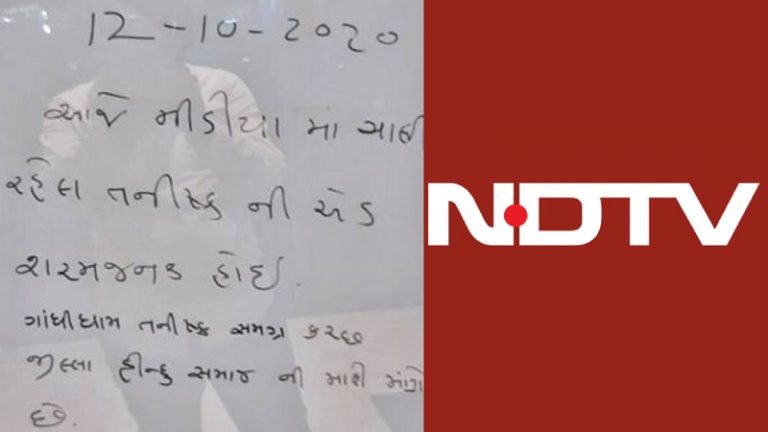 12-10-2020
આજે મીડીયા માં ચાલી
રહેલ તનીષ્ક ની એડ
શરમજનક હોઈ.
ગાંધીધામ તનીષ્ક સમગ્ર કચ્છ
જીલ્લા હીન્દુ સમાજ ની માફી માંગે
છે.
NDTV